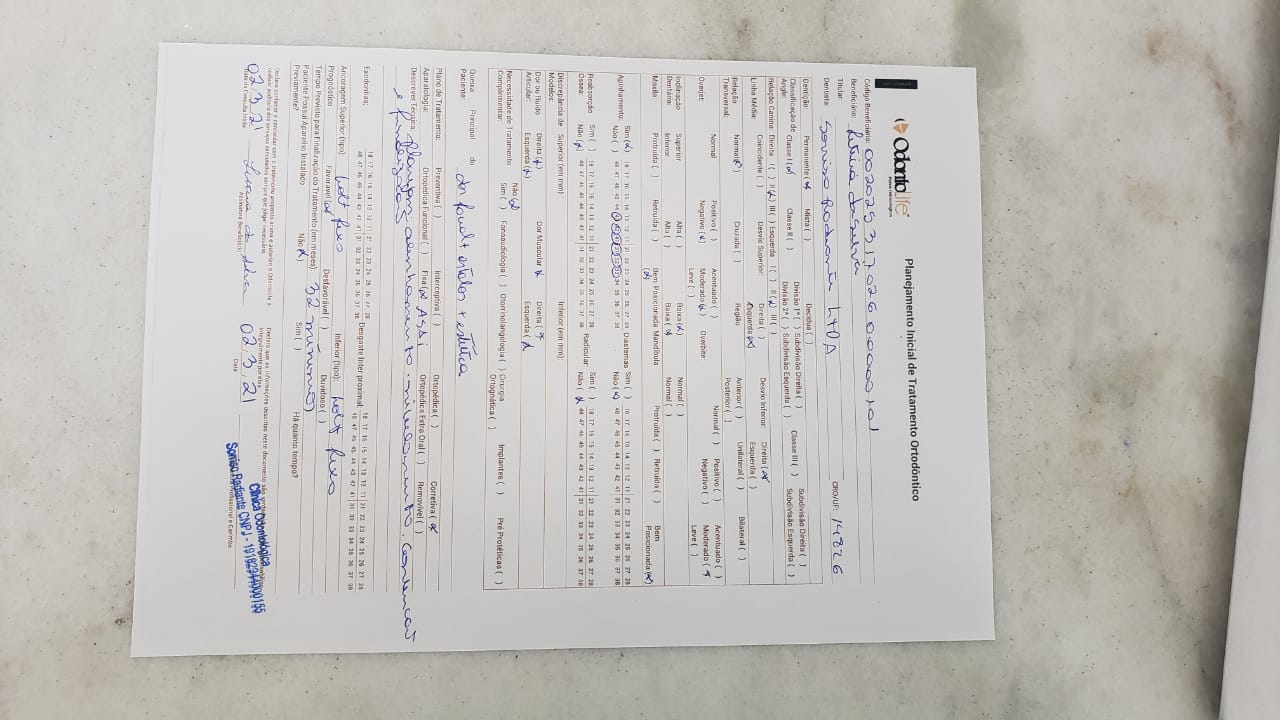 OdontoLife
Planejamento Inicial de Tratamento Ortodôntico
Código Beneficiário: 002025 317026 00000 , 01
Beneficiário: da Silva
Titular:
Dentista: Sorriso Radiante LTDA CRO/UF: 14826
Dentição Permanente (x) Mista ( ) Decídua ( )
Classificação de Angle: Classe I (x) Classe II ( ) Divisão 1ª ( ) Subdivisão Direita ( ) Divisão 2ª ( ) Subdivisão Esquerda ( ) Classe III ( ) Subdivisão Direita ( ) Subdivisão Esquerda ( )
Relação Canino: Direita I ( ) II (x) III ( ) Esquerda I ( ) II (x) III ( )
Linha Média: Coincidente ( ) Desvio Superior: Direita ( ) Esquerda (x) Desvio Inferior: Direita (x) Esquerda ( )
Relação Transversal: Normal (x) Cruzada ( ) Região Anterior ( ) Posterior ( ) Unilateral ( ) Bilateral ( )
Overjet: Normal Positivo ( ) Negativo (x) Acentuado ( ) Moderado (x) Leve ( ) Overbite: Normal ( ) Positivo ( ) Negativo ( ) Acentuado ( ) Moderado (x) Leve ( )
Inclinação Dentária: Superior Inferior Alto ( ) Alto ( ) Baixa (x) Baixa (x) Normal ( ) Normal ( )
Maxila: Protruída ( ) Retruída ( ) Bem Posicionada (x) Mandíbula Protruída ( ) Retruída ( ) Bem Posicionada (x)
Apinhamento: Sim (x) 18 17 16 15 14 13 12 11 21 22 23 24 25 26 27 28 Diastemas Sim ( ) 18 17 16 15 14 13 12 11 21 22 23 24 25 26 27 28
Não ( ) 48 47 46 45 44 43 42 41 31 32 33 34 35 36 37 38 Não (x) 48 47 46 45 44 43 42 41 31 32 33 34 35 36 37 38
Reabsorção Óssea: Sim ( ) 18 17 16 15 14 13 12 11 21 22 23 24 25 26 27 28 Radicular: Sim ( ) 18 17 16 15 14 13 12 11 21 22 23 24 25 26 27 28
Não (x) 48 47 46 45 44 43 42 41 31 32 33 34 35 36 37 38 Não (x) 48 47 46 45 44 43 42 41 31 32 33 34 35 36 37 38
Discrepância de Modelos: Superior (em mm) Inferior (em mm):
Dor ou Ruído Articular: Direita (x) Esquerda (x) Dor Muscular Direita (x) Esquerda (x)
Necessidade de Tratamento Complementar: Não (x) Sim ( ) Fonoaudiologia ( ) Otorrinolaringologia ( ) Cirurgia Ortognática ( ) Implantes ( ) Pré Protéticas ( )
Queixa Principal do Paciente: da estética
Plano de Tratamento: Preventiva ( ) Interceptiva ( ) Ortopédica ( ) Corretiva (x)
Aparatologia: Ortopédica Funcional ( ) Fixa (x) Ortopédica Extra Oral ( ) Removível ( )
Descrever Técnica: alinhamento nivelamento.
e finalização
Exodontias: 18 17 16 15 14 13 12 11 21 22 23 24 25 26 27 28 Desgaste Inter proximal: 18 17 16 15 14 13 12 11 21 22 23 24 25 26 27 28
48 47 46 45 44 43 42 41 31 32 33 34 35 36 37 38 48 47 46 45 44 43 42 41 31 32 33 34 35 36 37 38
Ancoragem Superior (tipo): Inferior (tipo):
Prognóstico: Favorável (x) Desfavorável ( ) Duvidoso ( )
Tempo Previsto para Finalização do Tratamento (em meses): 32
Paciente Possui Aparelho Instalado Previamente? Não (x) Sim ( ) Há quanto tempo?
02,3,21 da Silva 02,3,21
Assinatura Beneficiário Data
Clínica Odontológica
Sorriso Radiante CNPJ - 19182944000155